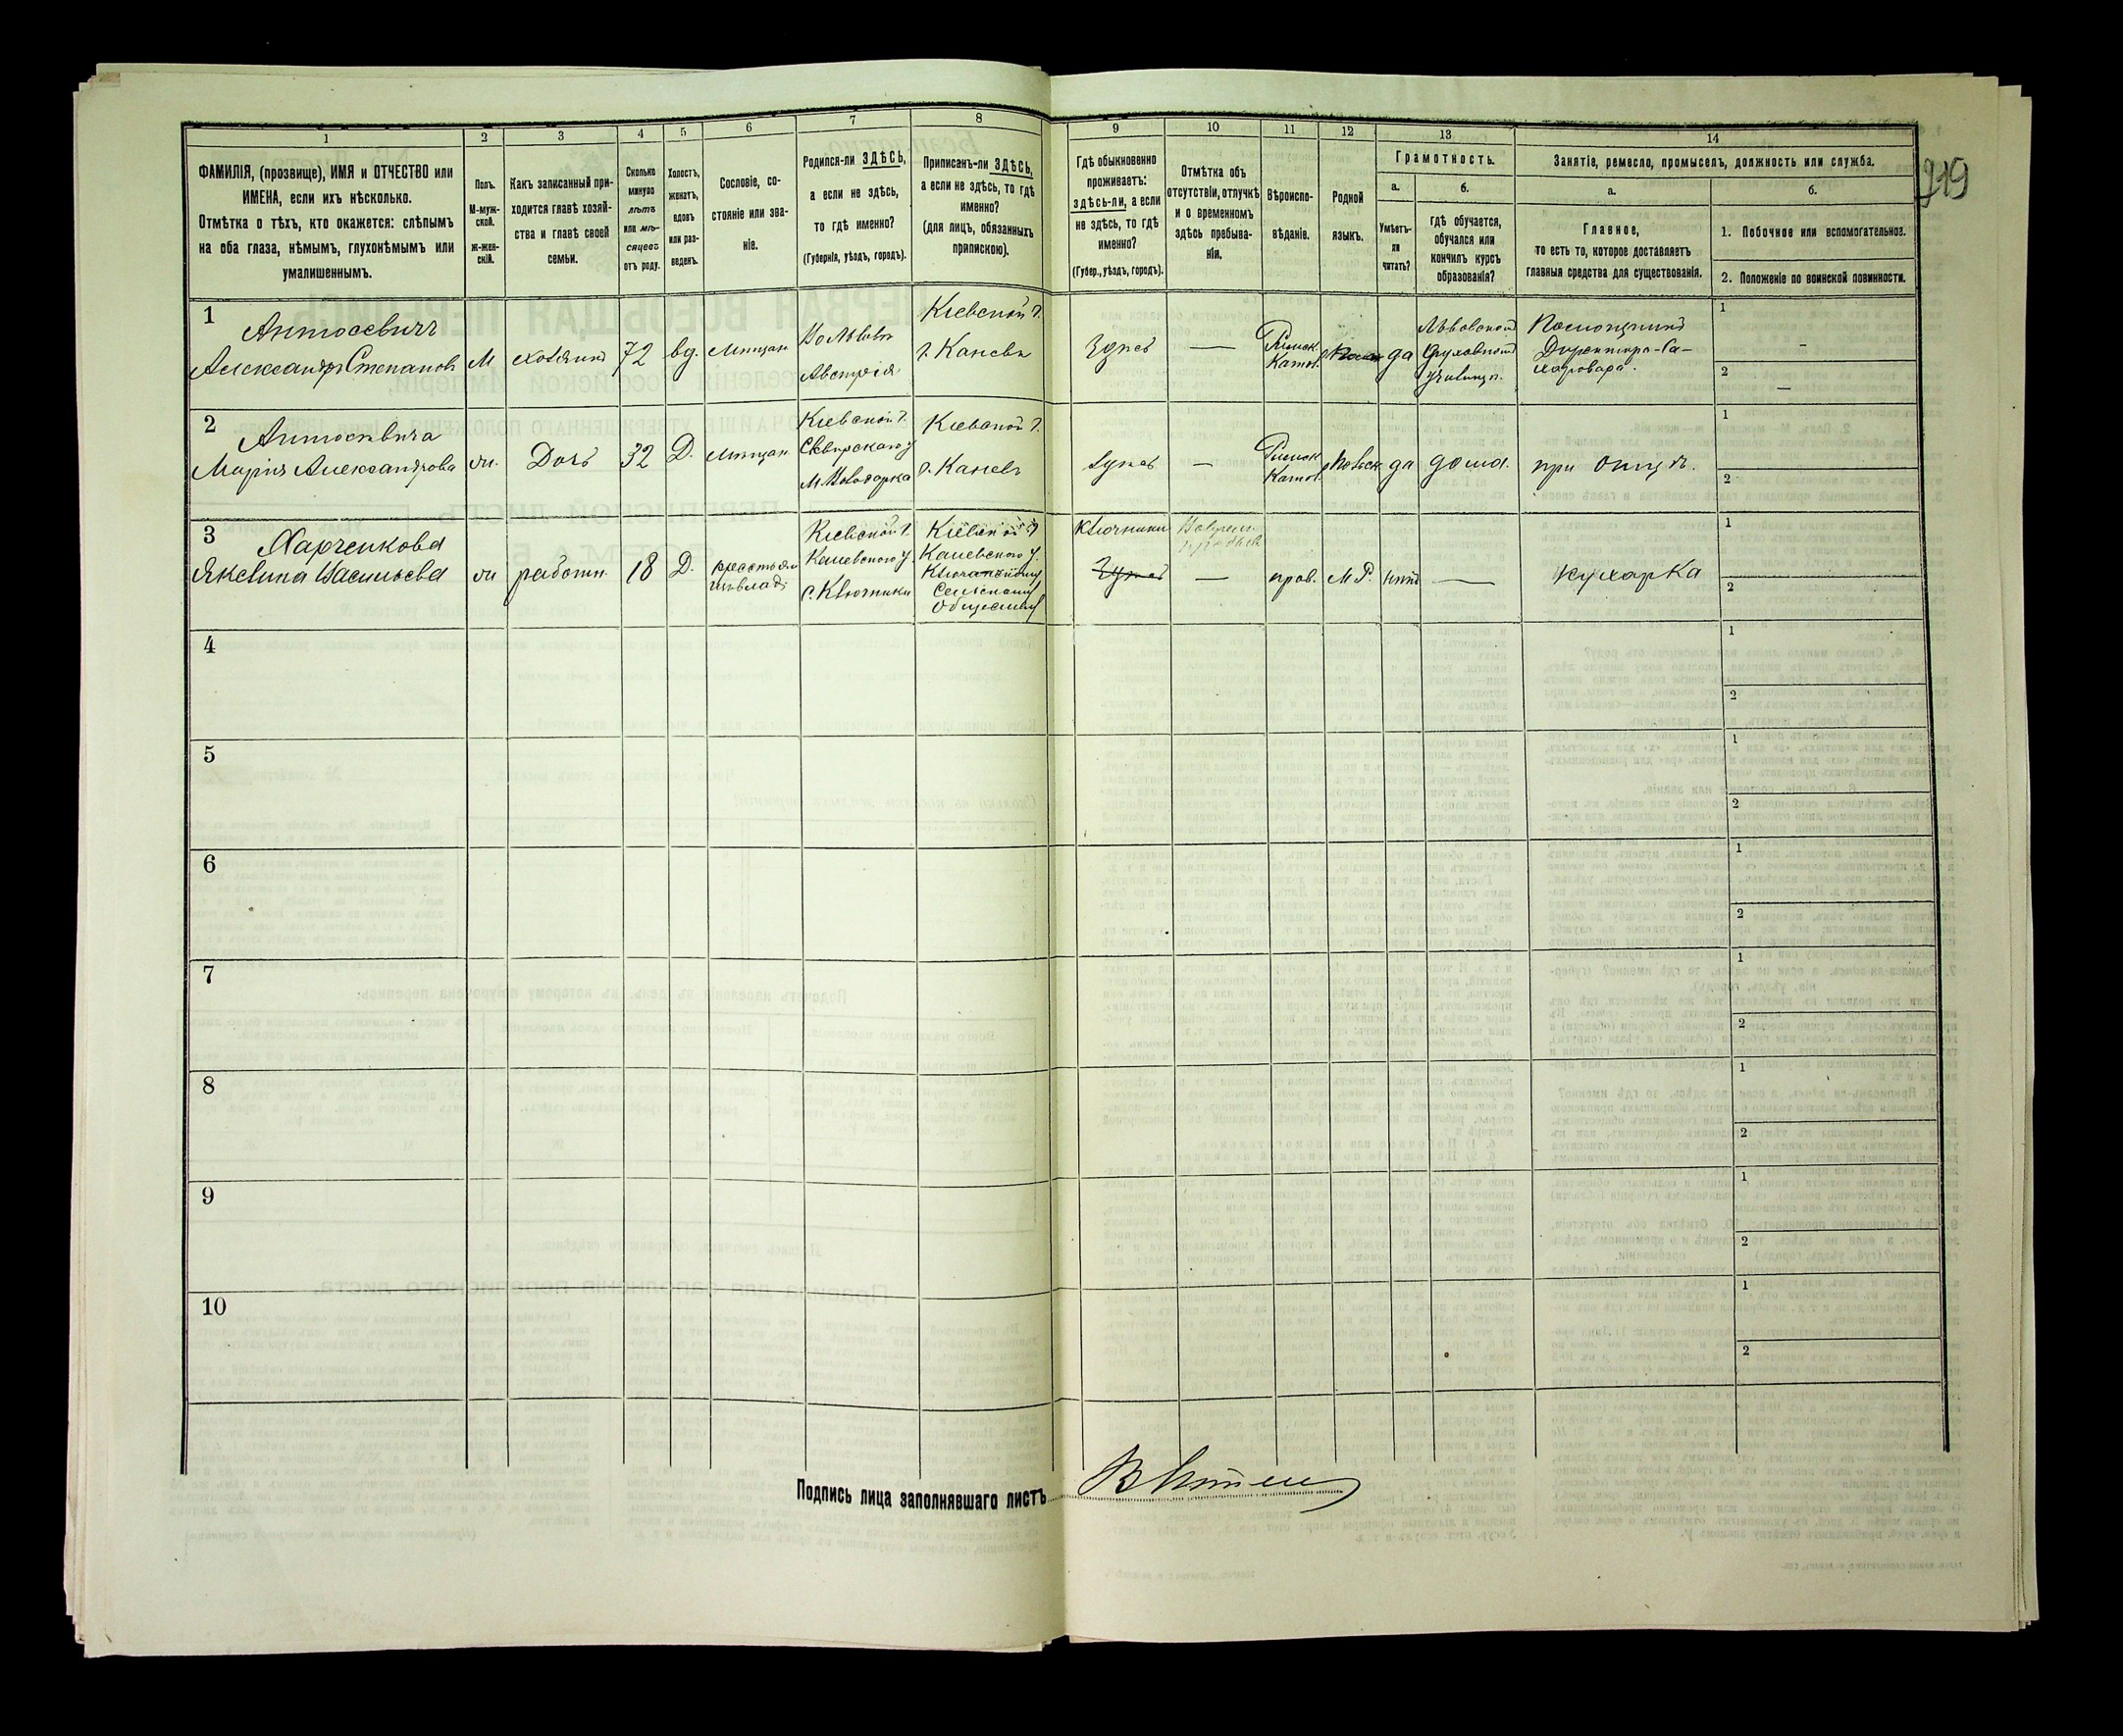 219
1 2 3 4 5 6 7 8 9 10 11 12 13 14
ФАМИЛІЯ, (прозвище), ИМЯ и ОТЧЕСТВО или
ИМЕНА, если ихъ нѣсколько.
Отмѣтка о тѣхъ, кто окажется: слѣпымъ
на оба глаза, нѣмымъ, глухонѣмымъ или
умалишеннымъ.
Полъ.
М-муж-
ской.
ж-жен-
скій.
Какъ записанный при-
ходится главѣ хозяй-
ства и главѣ своей
семьи.
Сколько
минуло
лѣтъ
или мѣ-
сяцевъ
отъ роду.
Холостъ,
женатъ,
вдовъ
или раз-
веденъ.
Сословіе, со-
стояніе или зва-
ніе.
Родился-ли ЗДѢСЬ,
а если не здѣсь,
то гдѣ именно?
(Губернія, уѣздъ, городъ).
Приписанъ-ли ЗДѢСЬ,
а если не здѣсь, то гдѣ
именно?
(для лицъ, обязанныхъ
припискою).
Гдѣ обыкновенно
проживаетъ:
здѣсь-ли, а если
не здѣсь, то гдѣ
именно?
(Губер., уѣздъ, городъ).
Отмѣтка объ
отсутствіи, отлучкѣ
и о временномъ
здѣсь пребыва-
ніи.
Вѣроиспо-
вѣданіе.
Родной
языкъ.
Грамотность.
а.
Умѣетъ-
ли
читать?
б.
гдѣ обучается,
обучался или
кончилъ курсъ
образованія?
Занятіе, ремесло, промыселъ, должность или служба.
а.
Главное,
то есть то, которое доставляетъ
главныя средства для существованія.
б.
1. Побочное или вспомогательное.
2. Положеніе по воинской повинности.
1
Антосевичъ
Александръ Степановъ
М
хозяинъ
72
вд.
мѣщан.
Австрія
Кіевской г.
г. Каневъ
Здѣсь
—
Римск.
Катол.
да
Львовской
Духовной
училищѣ.
Помощникъ
Директора-Са-
харовара.
1 -
2 —
2
Марія Александрова
ж.
Дочь
32
Д.
мѣщан.
Кіевской г.
Сквирскаго у.
М. Володарка
Кіевской г.
г. Каневъ
Здѣсь
—
Римск.
Катол.
Польск.
да
дома.
при отцѣ.
1
2
3
Харченкова
Акелина Васильева
ж
работн.
18
Д.
крестьян.
Кіевской г.
Каневского у.
с. Ключники
Кіевской г.
Каневского у.
Сельскаго
Общества
Ключники
Здѣсь
—
прав.
М. Р.
нѣтъ
—
кухарка
1
2
4
1
2
5
1
2
6
1
2
7
1
2
8
1
2
9
1
2
10
1
2
Подпись лица заполнявшаго листъ